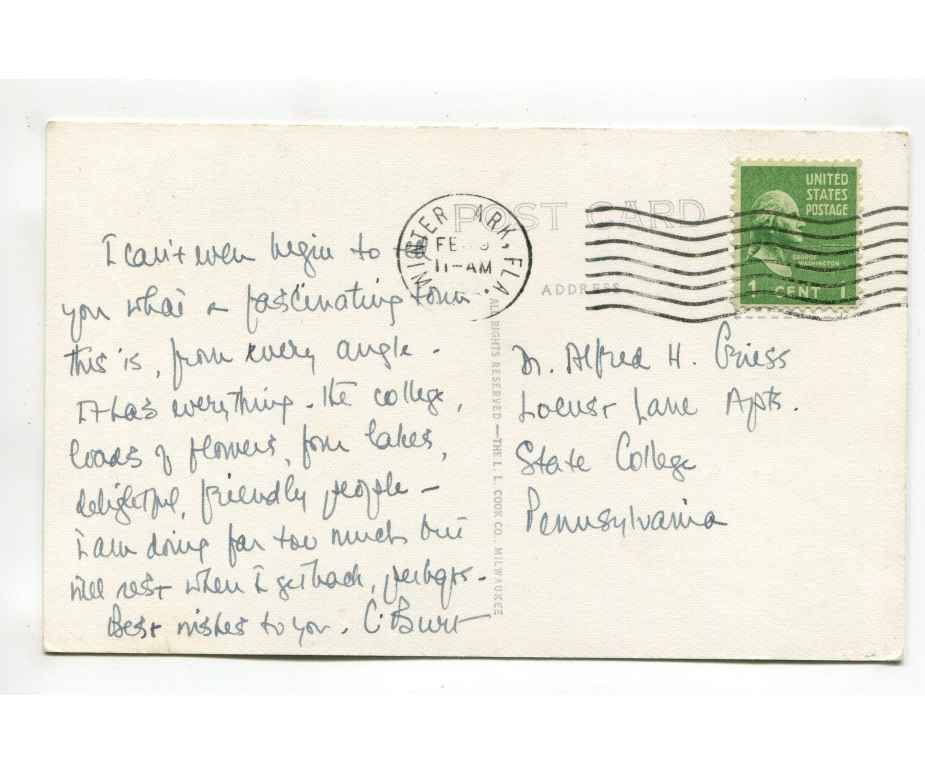 POST CARD
WINTER PARK, FLA.
FEB
11-AM
ADDRESS
UNITED
STATES
POSTAGE
GEORGE
WASHINGTON
1 CENT 1
I can't even begin to
you what a fascinating town
this is, from every angle.
It has everything. The college,
loads of flowers, four lakes,
delightful, friendly people –
I am doing far too much but
will rest when I get back, perhaps.
Best wishes to you. C. Burt
ALL RIGHTS RESERVED — THE L. L. COOK CO., MILWAUKEE
Alfred H. Griess
Locust Lane Apts.
State College
Pennsylvania